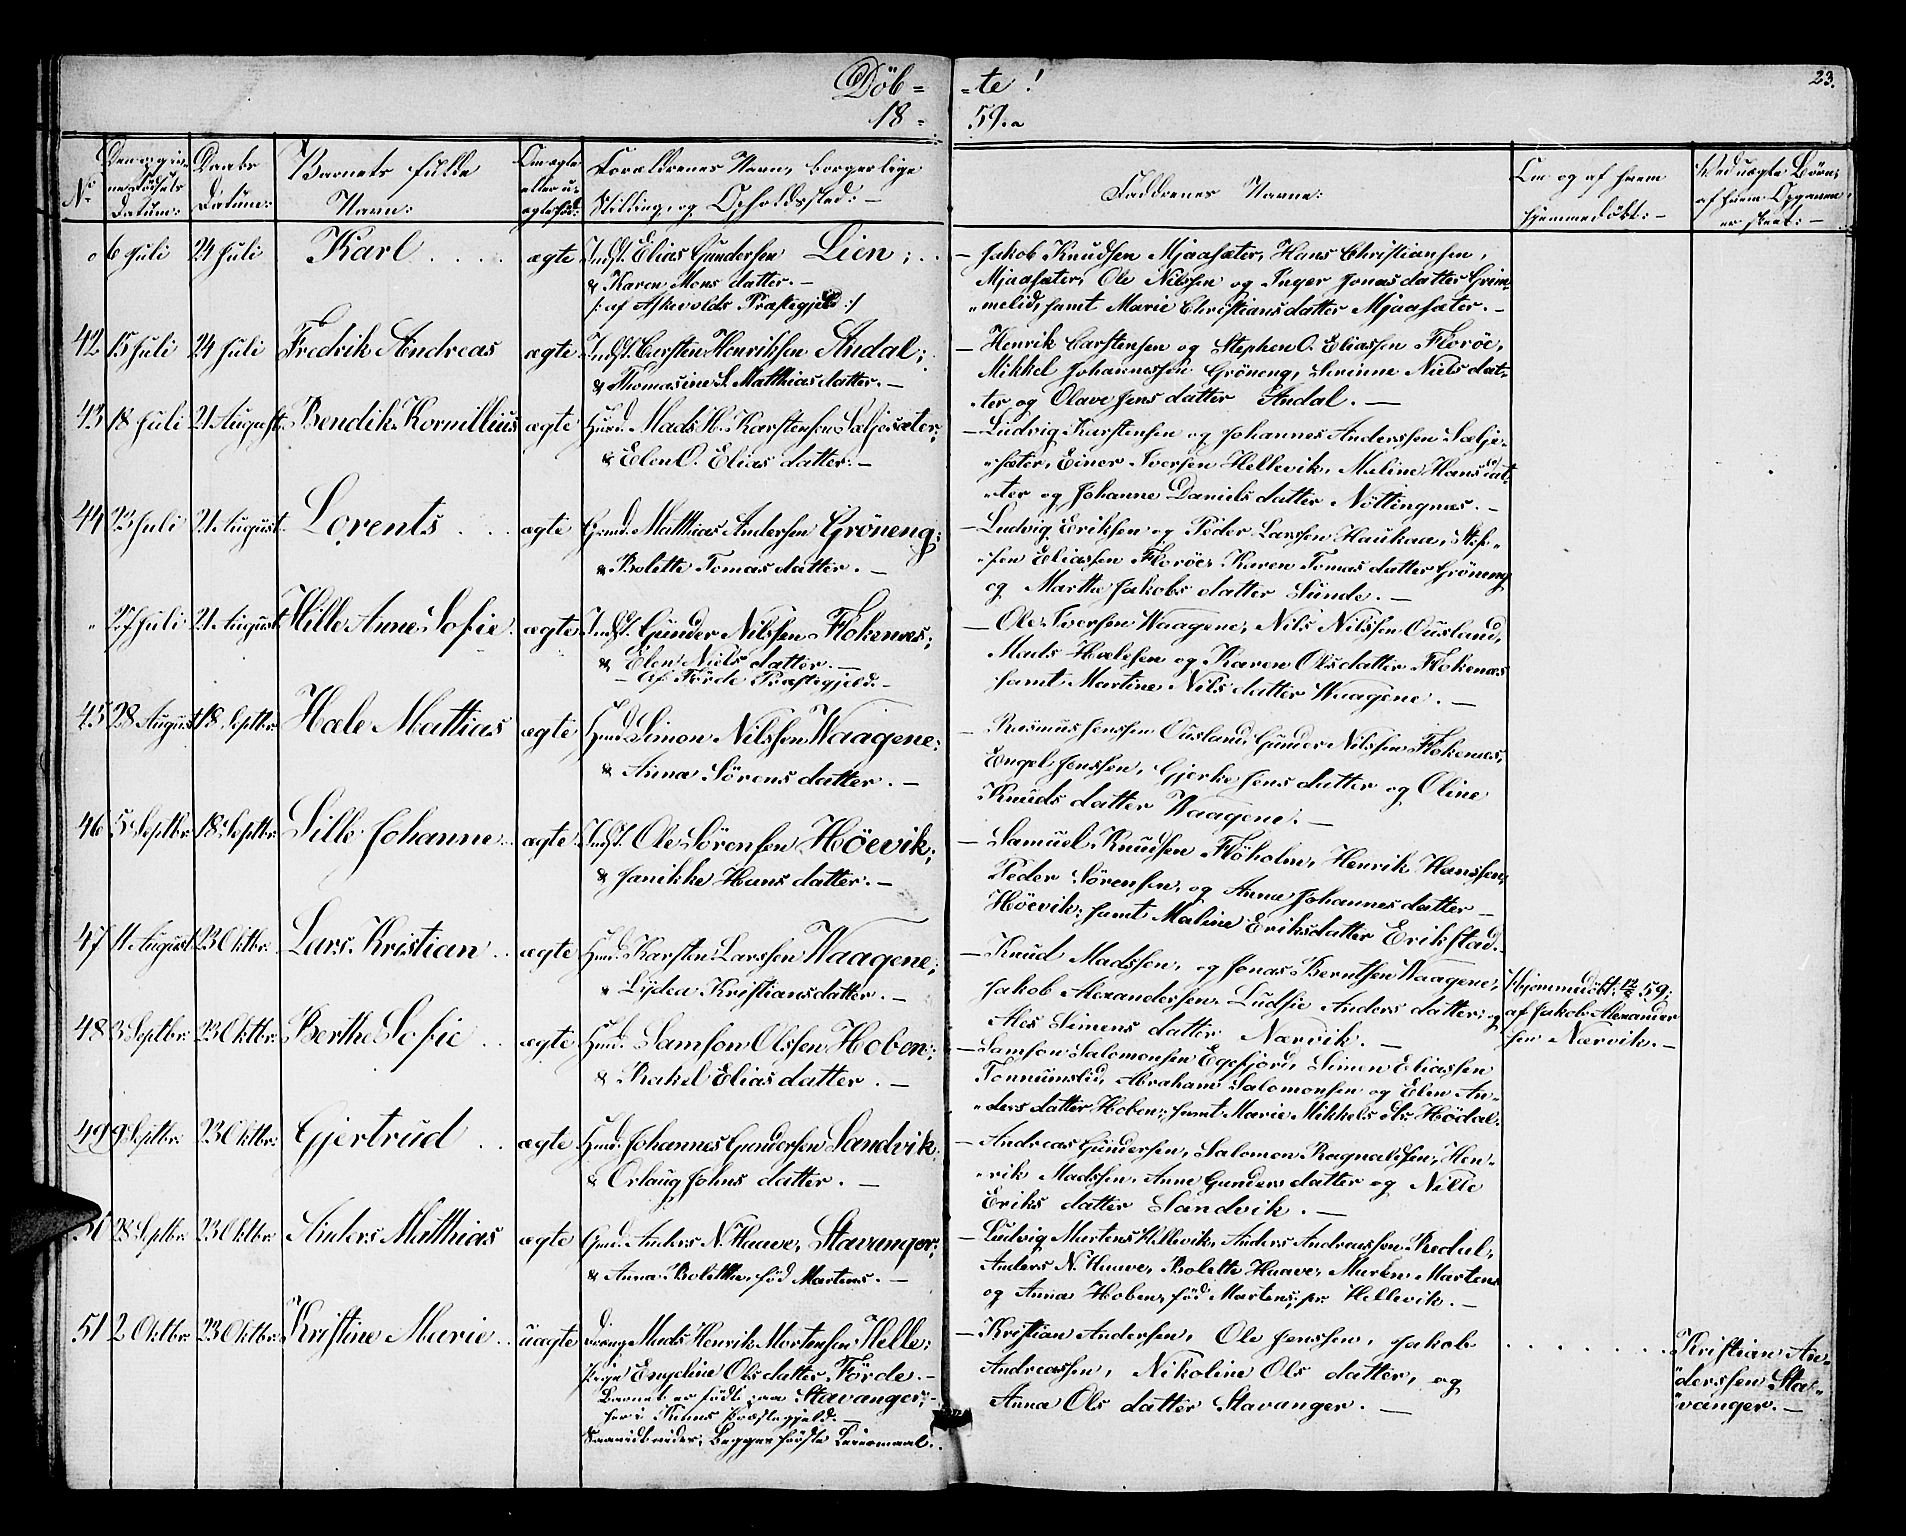 Döb= =te!
23.
18= 59.
No
Datum:
Daabs Datum:
Barnets fulde Navn:
Om ægte eller uægte fød:
Forældrenes Navn, borgerlige Stilling, og Opholdssted:-
Faddrenes Navne:
Om og af hvem hjemmedöbt:-
Ved uægte Börn, af hvem Opgaven er skeet:-
6 Juli 24 Juli Karl ægte Indst. Elias Gundersen Lien;
& Karen Mons datter.-
/: af Askevolds Præstegjeld :/
- Jakob Knudsen Mjaasæter, Hans Christiansen,
Mjaasæter, Ole Nilssen og Inger Jonasdatter Grim-
-melid, samt Marie Christiansdatter Mjaasæter.-
42 15 Juli 24 Juli Fredrik Andreas ægte Indst. Carsten Henriksen Andal;
& Thomasine S. Matthias datter.-
- Henrik Carstensen og Stephen O. Eliassen Floröe,
Mikkel Johannessen Gröneng, Serinne Niels dat-
-ter og Olave Jens datter Andal.-
43 18 Juli 21 August Bendik Kornillius ægte Huusd. Mads H. Karstensen Sæljesæter;
& Elen O. Elias datter:-
- Ludvig Karstensen og Johannes Anderssen Sælje-
-sæter, Einer Iversen Hellevik, Maline Hans dat-
-ter og Johanne Daniels datter Nöttingnes.-
44 23 Juli 21 August Lorents ægte Grmd. Matthias Andersen Gröneng;
& Bolette Tomas datter.-
- Ludvig Eriksen og Peder Larssen Haukaa, Stef-
-fen Eliassen Floröe, Karen Tomas datter Gröneng
og Marthe Jakobs datter Sunde.-
" 27 Juli 21 August Hille Anne Sofie ægte Indst. Gunder Nilssen Flokenæs;
& Elen Niels datter.-
- af Förde Præstegjeld.-
- Ole Iversen Waagene, Nils Nilssen Ousland,
Mads Hælesen og Karen Olsdatter Flokenæs
samt Martine Nils datter Waagene.-
45 28 August 18 Septbr. Hæle Mattias ægte Huusd. Simon Nilssen Waagene;
& Anna Sörens datter.-
- Rasmus Jenssen Ousland, Gunder Nilssen Flokenæs,
Engel Jenssen, Gjerke Jens datter og Oline
Knuds datter Waagene.-
46 5 Septbr. 18 Septbr. Sille Johanne ægte Indst. Ole Sörensen Höevik;
& Janikke Hans datter.-
- Samuel Knudsen Flöholm, Henrik Hanssen,
Peder Sörensen, og Anna Johannes datter-
Höevik; samt Maline Eriksdatter Erikstad.
47 11 August 23 Oktbr. Lars Kristian ægte Huusd. Karsten Larssen Waagene;
& Lydea Kristiansdatter.-
- Knud Madssen, og Jonas Berntsen Waagene,
Jakob Alexandersen, Ludsie Anders datter, og
Ales Simens datter Nærvik.-
Hjemmedöbt 12/8 59;
af Jakob Alexander
sen Nærvik.-
48 3 Septbr. 23 Oktbr. Berthe Sofie ægte Huusd. Samson Olssen Hoben;
& Rakel Elias datter.-
- Samson Salomonsen Egefjord, Simon Eliassen
Tonnumslid, Abraham Salomonsen og Elen An-
-ders datter Hoben; samt Marie Mikkels dtr. Hödal.
49 9 Septbr. 23 Oktbr. Gjertrud ægte Huusd. Johannes Gundersen Sandvik;
& Orlaug Johns datter.-
- Andreas Gundersen, Salomon Ragnaldsen, Hen-
-rik Madssen, Anne Gunders datter og Nille
Eriks datter Sandvik.-
50 28 Septbr. 23 Oktbr. Anders Matthias ægte Grmd. Anders N. Haave, Stavanger;
& Anna Bolethe, fød Martens.-
- Ludvig Martens Hellevik, Anders Andreassen Redal,
Anders N. Haave, Bolette Haave, Maren Martens
og Anna Hoben, föd Martens, pr. Hellevik.-
51 2 Oktbr. 23 Oktbr. Kristine Marie uægte Dreng Mads Henrik Mortensen Helle;
Pige Engeline Ols datter Förde.-
Barnet er födt paa Stavanger;-
her i Kinns Præstegjeld.-
Begges förste Leiermaal.
- Kristian Andersen, Ole Jenssen, Jakob
Andreassen, Nikoline Ols datter, og
Anna Ols datter Stavanger.-
Kristian An-
derssen Sta-
vanger.-